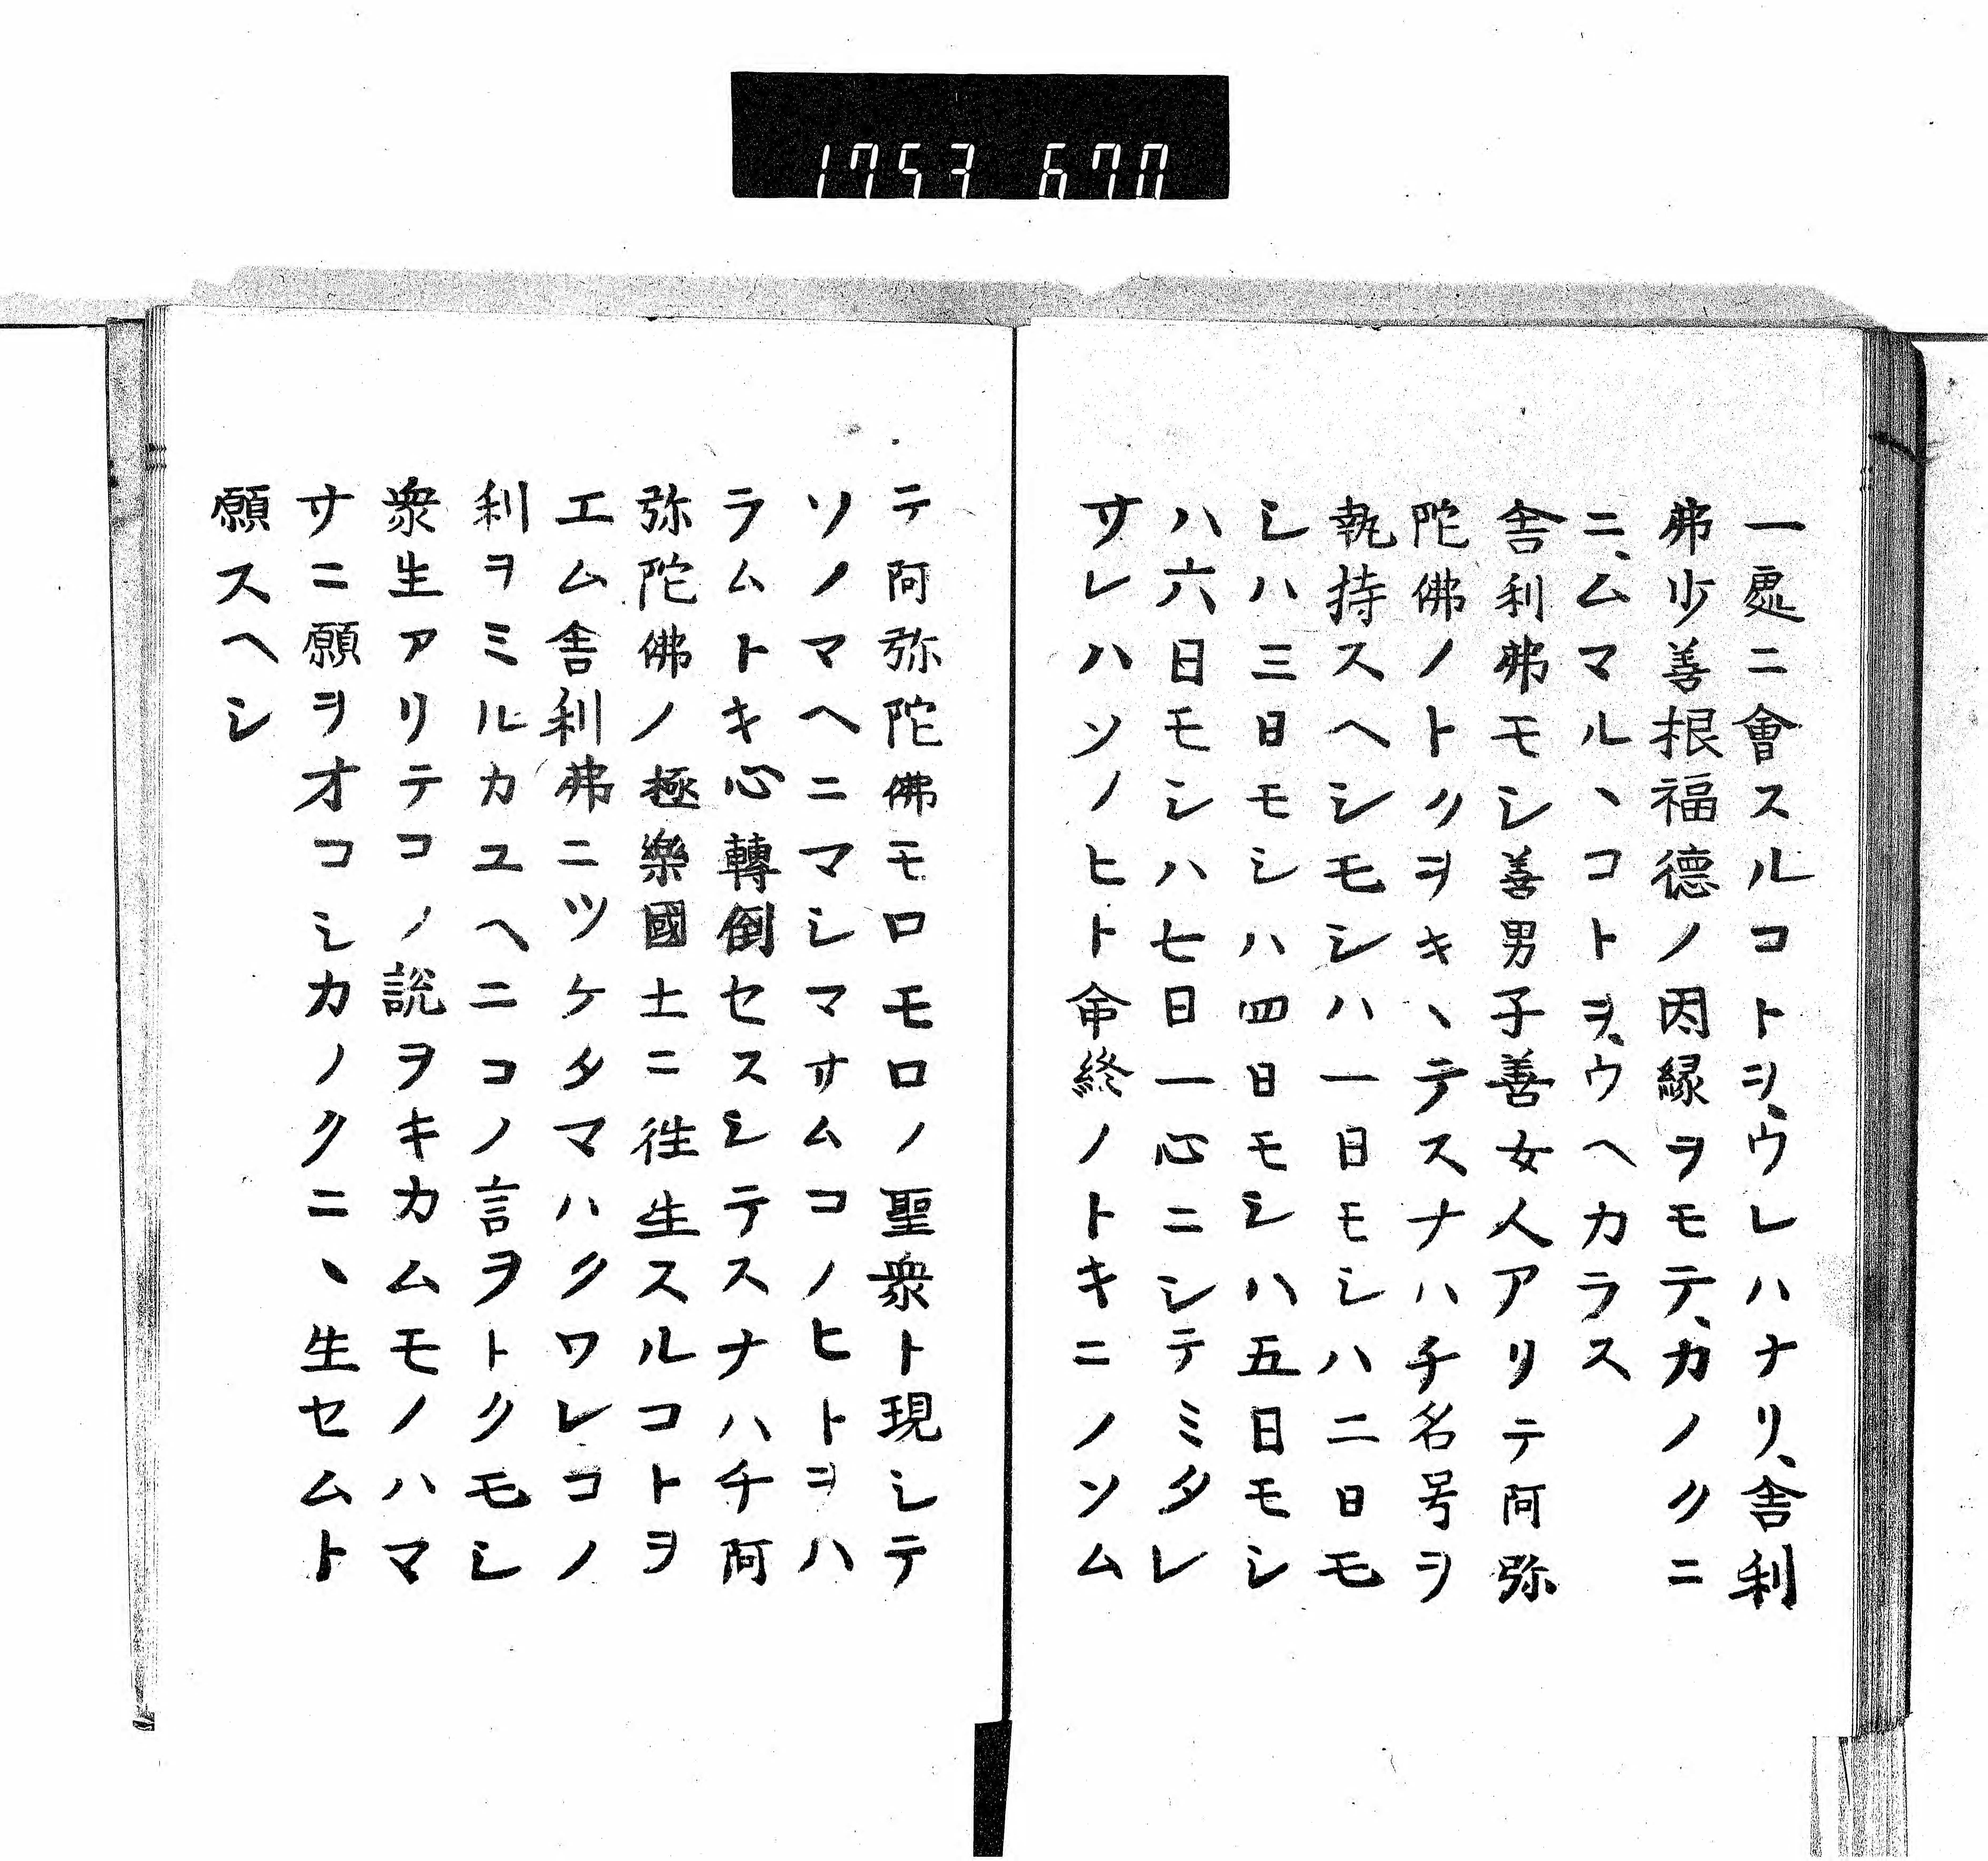 1753 670
一處ニ會スルコトヲ、ウレハナリ、舎利
弗少善根福德ノ因縁ヲモテ、カノクニ
ニ、ムマルヽコトヲ、ウヘカラス
舎利弗モシ善男子善女人アリテ阿弥
陀佛ノトクヲキヽテスナハチ名号ヲ
執持スヘシモシハ一日モシハ二日モ
シハ三日モシハ四日モシハ五日モシ
ハ六日モシハ七日一心ニシテミタレ
サレハソノヒト命終ノトキニノソム
テ阿弥陀佛モロモロノ聖衆ト現シテ
ソノマヘニマシマサムコノヒトヲハ
ラムトキ心轉倒セスシテスナハチ阿
弥陀佛ノ極樂國土ニ徃生スルコトヲ
エム舎利弗ニツケタマハクワレコノ
利ヲミルカユヘニコノ言ヲトクモシ
衆生アリテコノ說ヲキカムモノハマ
サニ願ヲオコシカノクニヽ生セムト
願スヘシ